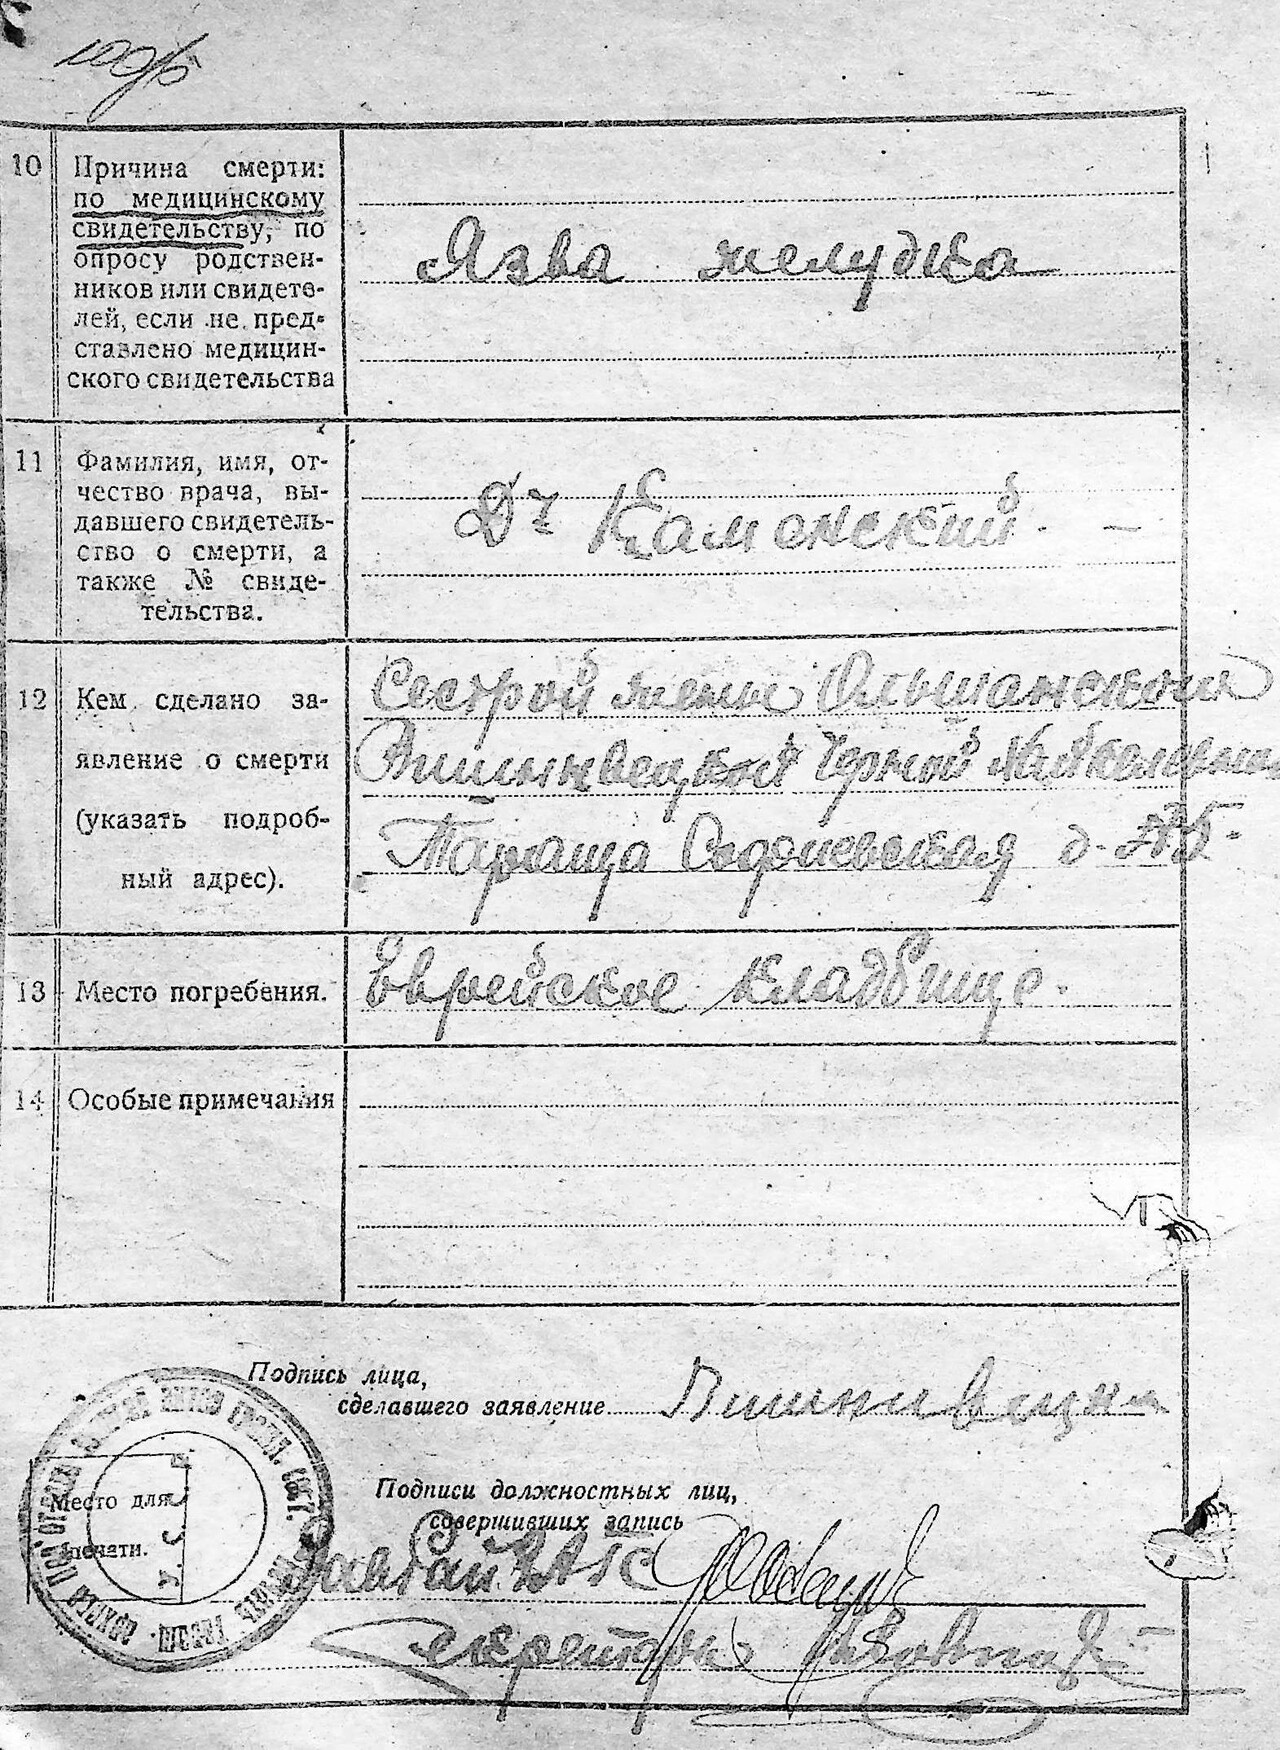 10
Причина смерти:
по медицинскому
свидетельству, по
опросу родствен-
ников или свидете-
лей, если не пред-
ставлено медицин-
ского свидетельства
Язва желудка
11
Фамилия, имя, от-
чество врача, вы-
давшего свидетель-
ство о смерти, а
также № свиде-
тельства.
Др Каменский
12
Кем сделано за-
явление о смерти
(указать подроб-
ный адрес).
Сестрой жены Ольшанской
Вишнивецкой Черной
Тараща Софиевская д.
13
Место погребения.
Еврейское кладбище.
14
Особые примечания
Подпись лица,
сделавшего заявление
Вишнивецка
Место для
печати.
Подписи должностных лиц,
совершивших запись
Секретарь